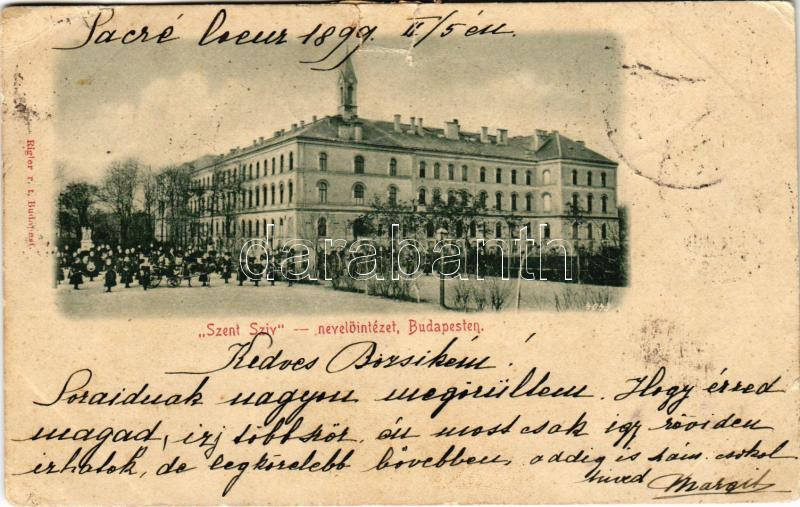 Sacré Coeur 1899 II/5én
Rigler r. t. Budapest.
darabanth
„Szent Sziv" — nevelöintézet, Budapesten.
Kedves Bozsikém!
Soraidnak nagyon megörültem. Hogy érzed
magad, irj többször, én most csak igy röviden
irhatok, de legközelebb bővebben, addig is szám. csokol
hived Margit